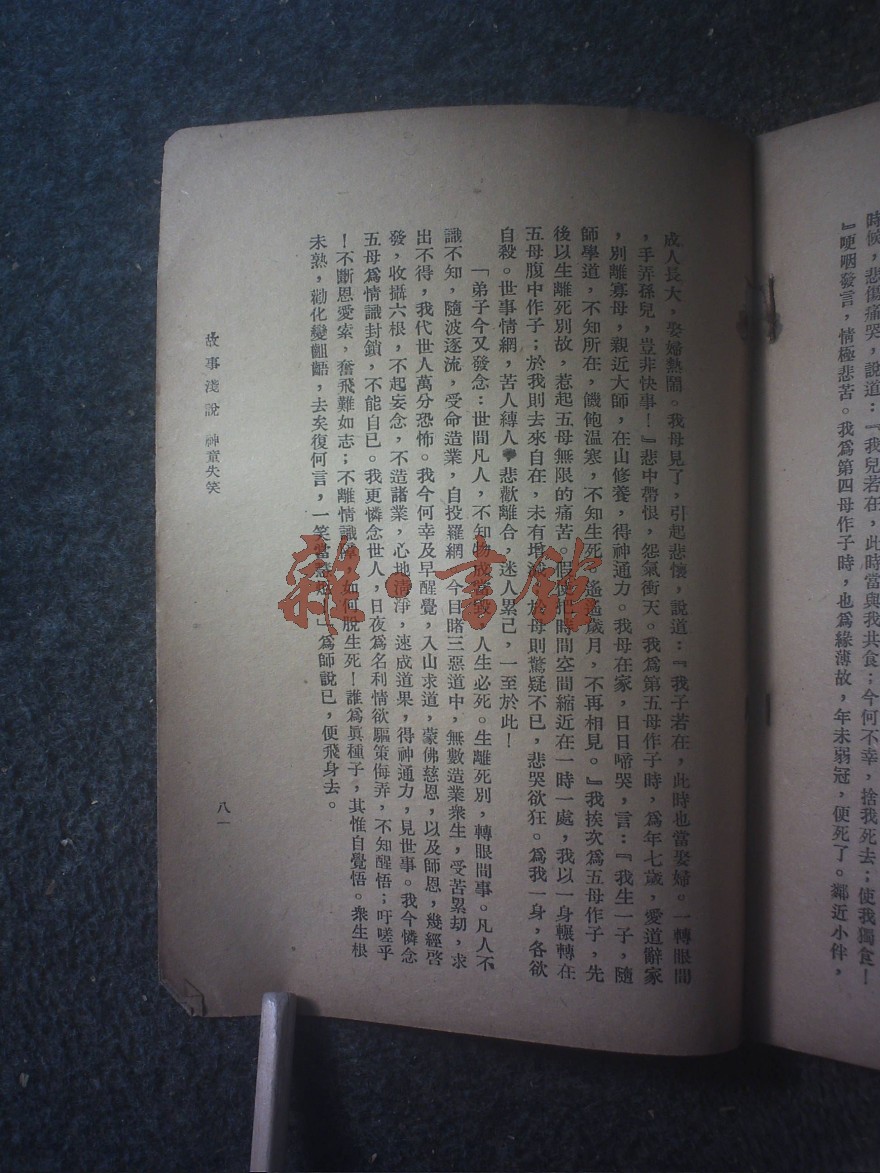 時候，悲傷痛哭，說道：『我兒若在，此時當與我共食；今何不幸，捨我死去；使我獨食！
』哽咽發言，情極悲苦。我爲第四母作子時，也爲緣薄故，年未弱冠，便死了。鄰近小伴，
成人長大，娶婦熱鬧。我母見了，引起悲懷，說道：『我子若在，此時也當娶婦。一轉眼間
，手弄孫兒，豈非快事！』悲中帶恨，怨氣衝天。我爲第五母作子時，爲年七歲，愛道辭家
，別離寡母，親近大師，在山修養，得神通力。我母在家，日日啼哭，言：『我生一子，隨
師學道，不知所在，饑飽温寒，不知生死，遙遙歲月，不再相見。』我挨次爲五母作子，先
後以生離死別故，惹起五母無限的痛苦。假使把時間空間縮近在一時一處，我以一身輾轉在
五母腹中作子；於我則去來自在，未有增減，於母則驚疑不已，悲哭欲狂。爲我一身，各欲
自殺。世事情網，苦人縛人，悲歡離合，迷人累己，一至於此！
「弟子今又發念：世間凡人，不知物成當毀，人生必死。生離死別，轉眼間事。凡人不
識不知，隨波逐流，受命造業，自投羅網。今目睹三惡道中，無數造業衆生，受苦累劫，求
出不得，我代世人萬分恐怖。我今何幸及早醒覺，入山求道，蒙佛慈恩，以及師恩，幾經啓
發，收攝六根，不起妄念，不造諸業，心地清淨，速成道果，得神通力，見世事。我今憐念
五母爲情識封鎖，不能自已。我更憐念世人，日夜爲名利情欲驅策侮弄，不知醒悟；吁嗟乎
！不斷恩愛索，奮飛難如志；不離情識障，如何脫生死！誰爲眞種子，其惟自覺悟。衆生根
未熟，勸化變齟齬，去矣復何言，一笑當」爲師說已，便飛身去。
故事淺說 神童失笑
八一
雜·書館